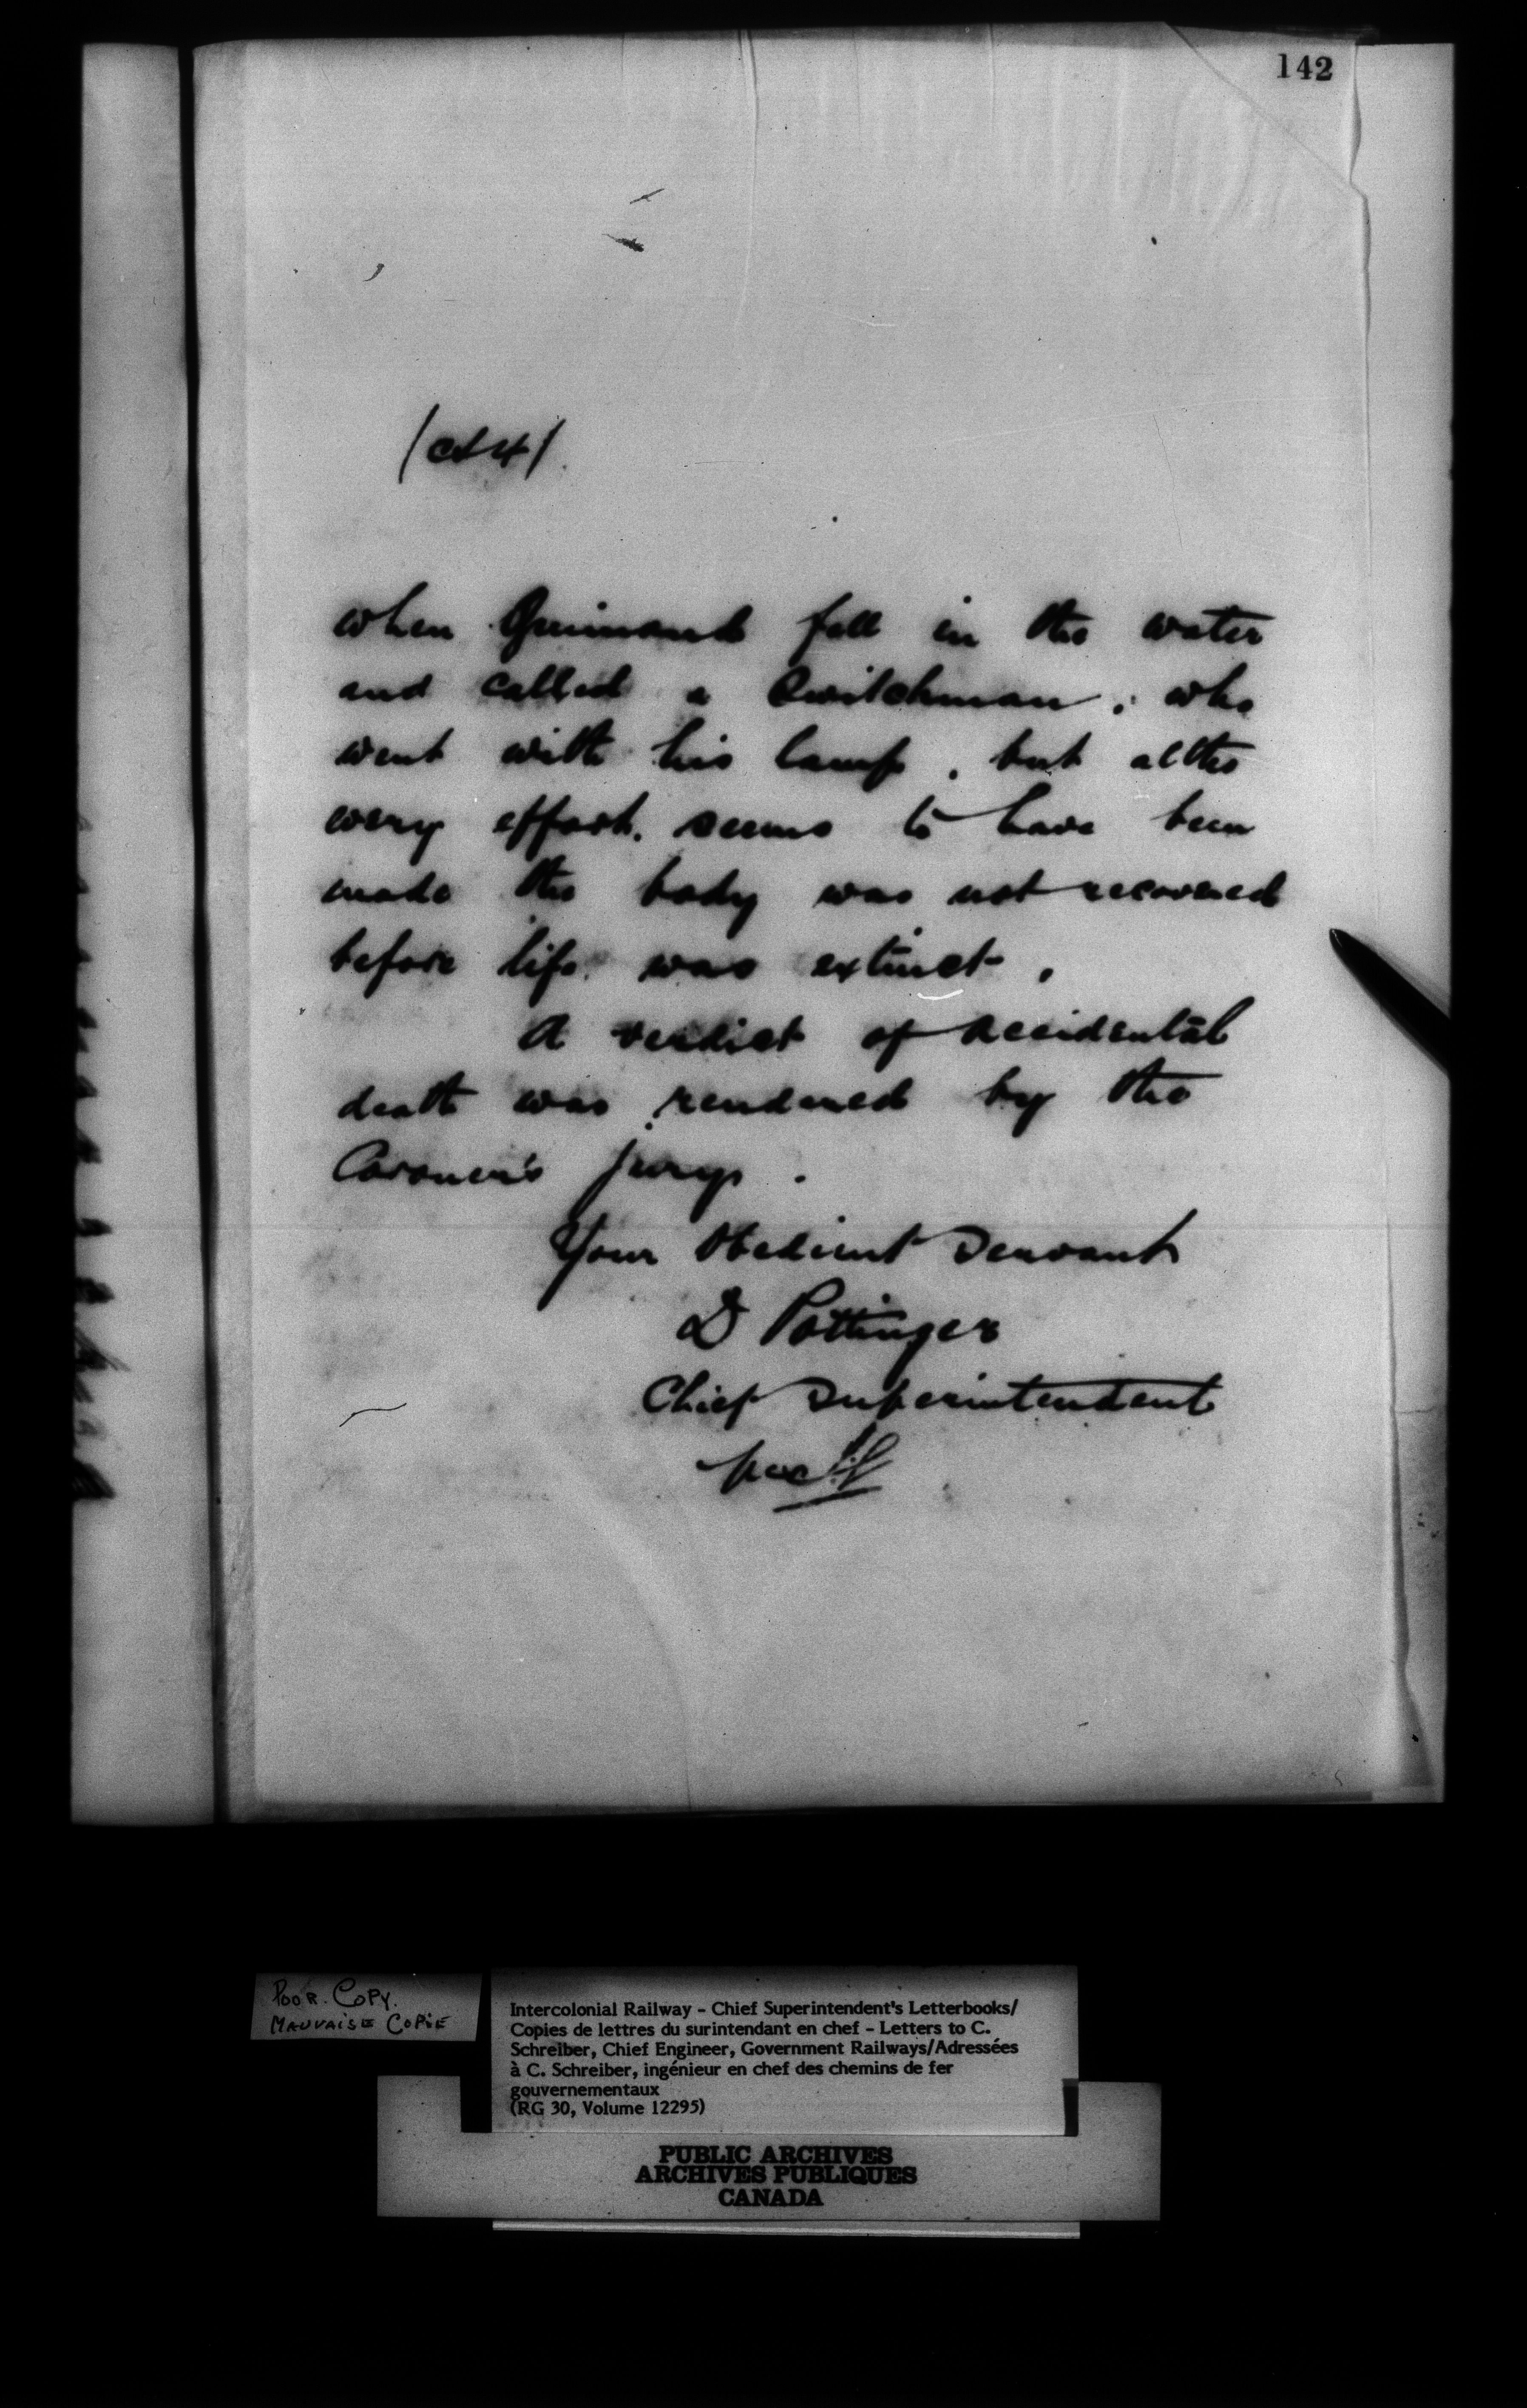 142
when Guimond fell in the water
and called a Switchman, who
went with his lamp, but altho
every effort seems to have been
made the body was not recovered
before life was extinct.
A verdict of Accidental
death was rendered by the
Coroner's jury.
Your Obedient Servant
D Pottinger
Chief Superintendent
POOR. COPY.
MAUVAISE COPIE
Intercolonial Railway - Chief Superintendent's Letterbooks/
Copies de lettres du surintendant en chef - Letters to C.
Schreiber, Chief Engineer, Government Railways/Adressées
à C. Schreiber, ingénieur en chef des chemins de fer
gouvernementaux
(RG 30, Volume 12295)
PUBLIC ARCHIVES
ARCHIVES PUBLIQUES
CANADA